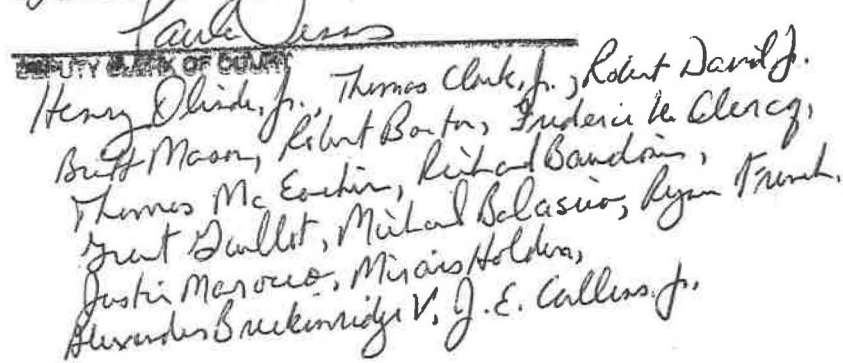 DEPUTY CLERK OF COURT
Henry Olinde, Jr., Thomas Clark, Jr., Robert David Jr.
Brett Mason, Robert Barton, Frederic Le Clercq,
Thomas McEachin, Richard Baudouin,
Grant Guillot, Michael Balascio, Ryan French,
Justin Marocco, Mirais Holden,
Alexander Breckinridge V, J. E. Cullens, Jr.